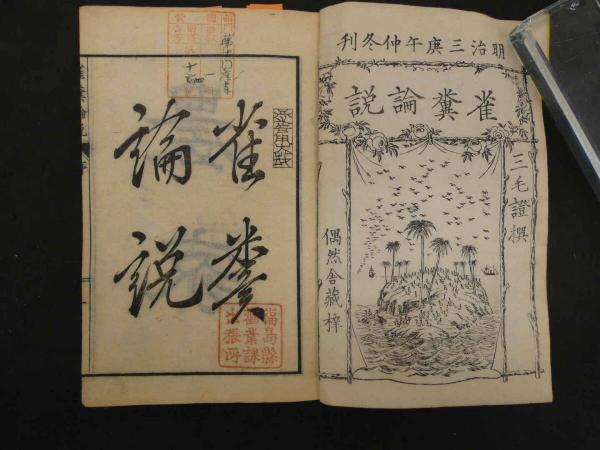 明治三庚午仲冬刊
雀糞論説
三毛證撰
偶然舎藏梓
雀糞
論説
福島縣
勸業課
出張所